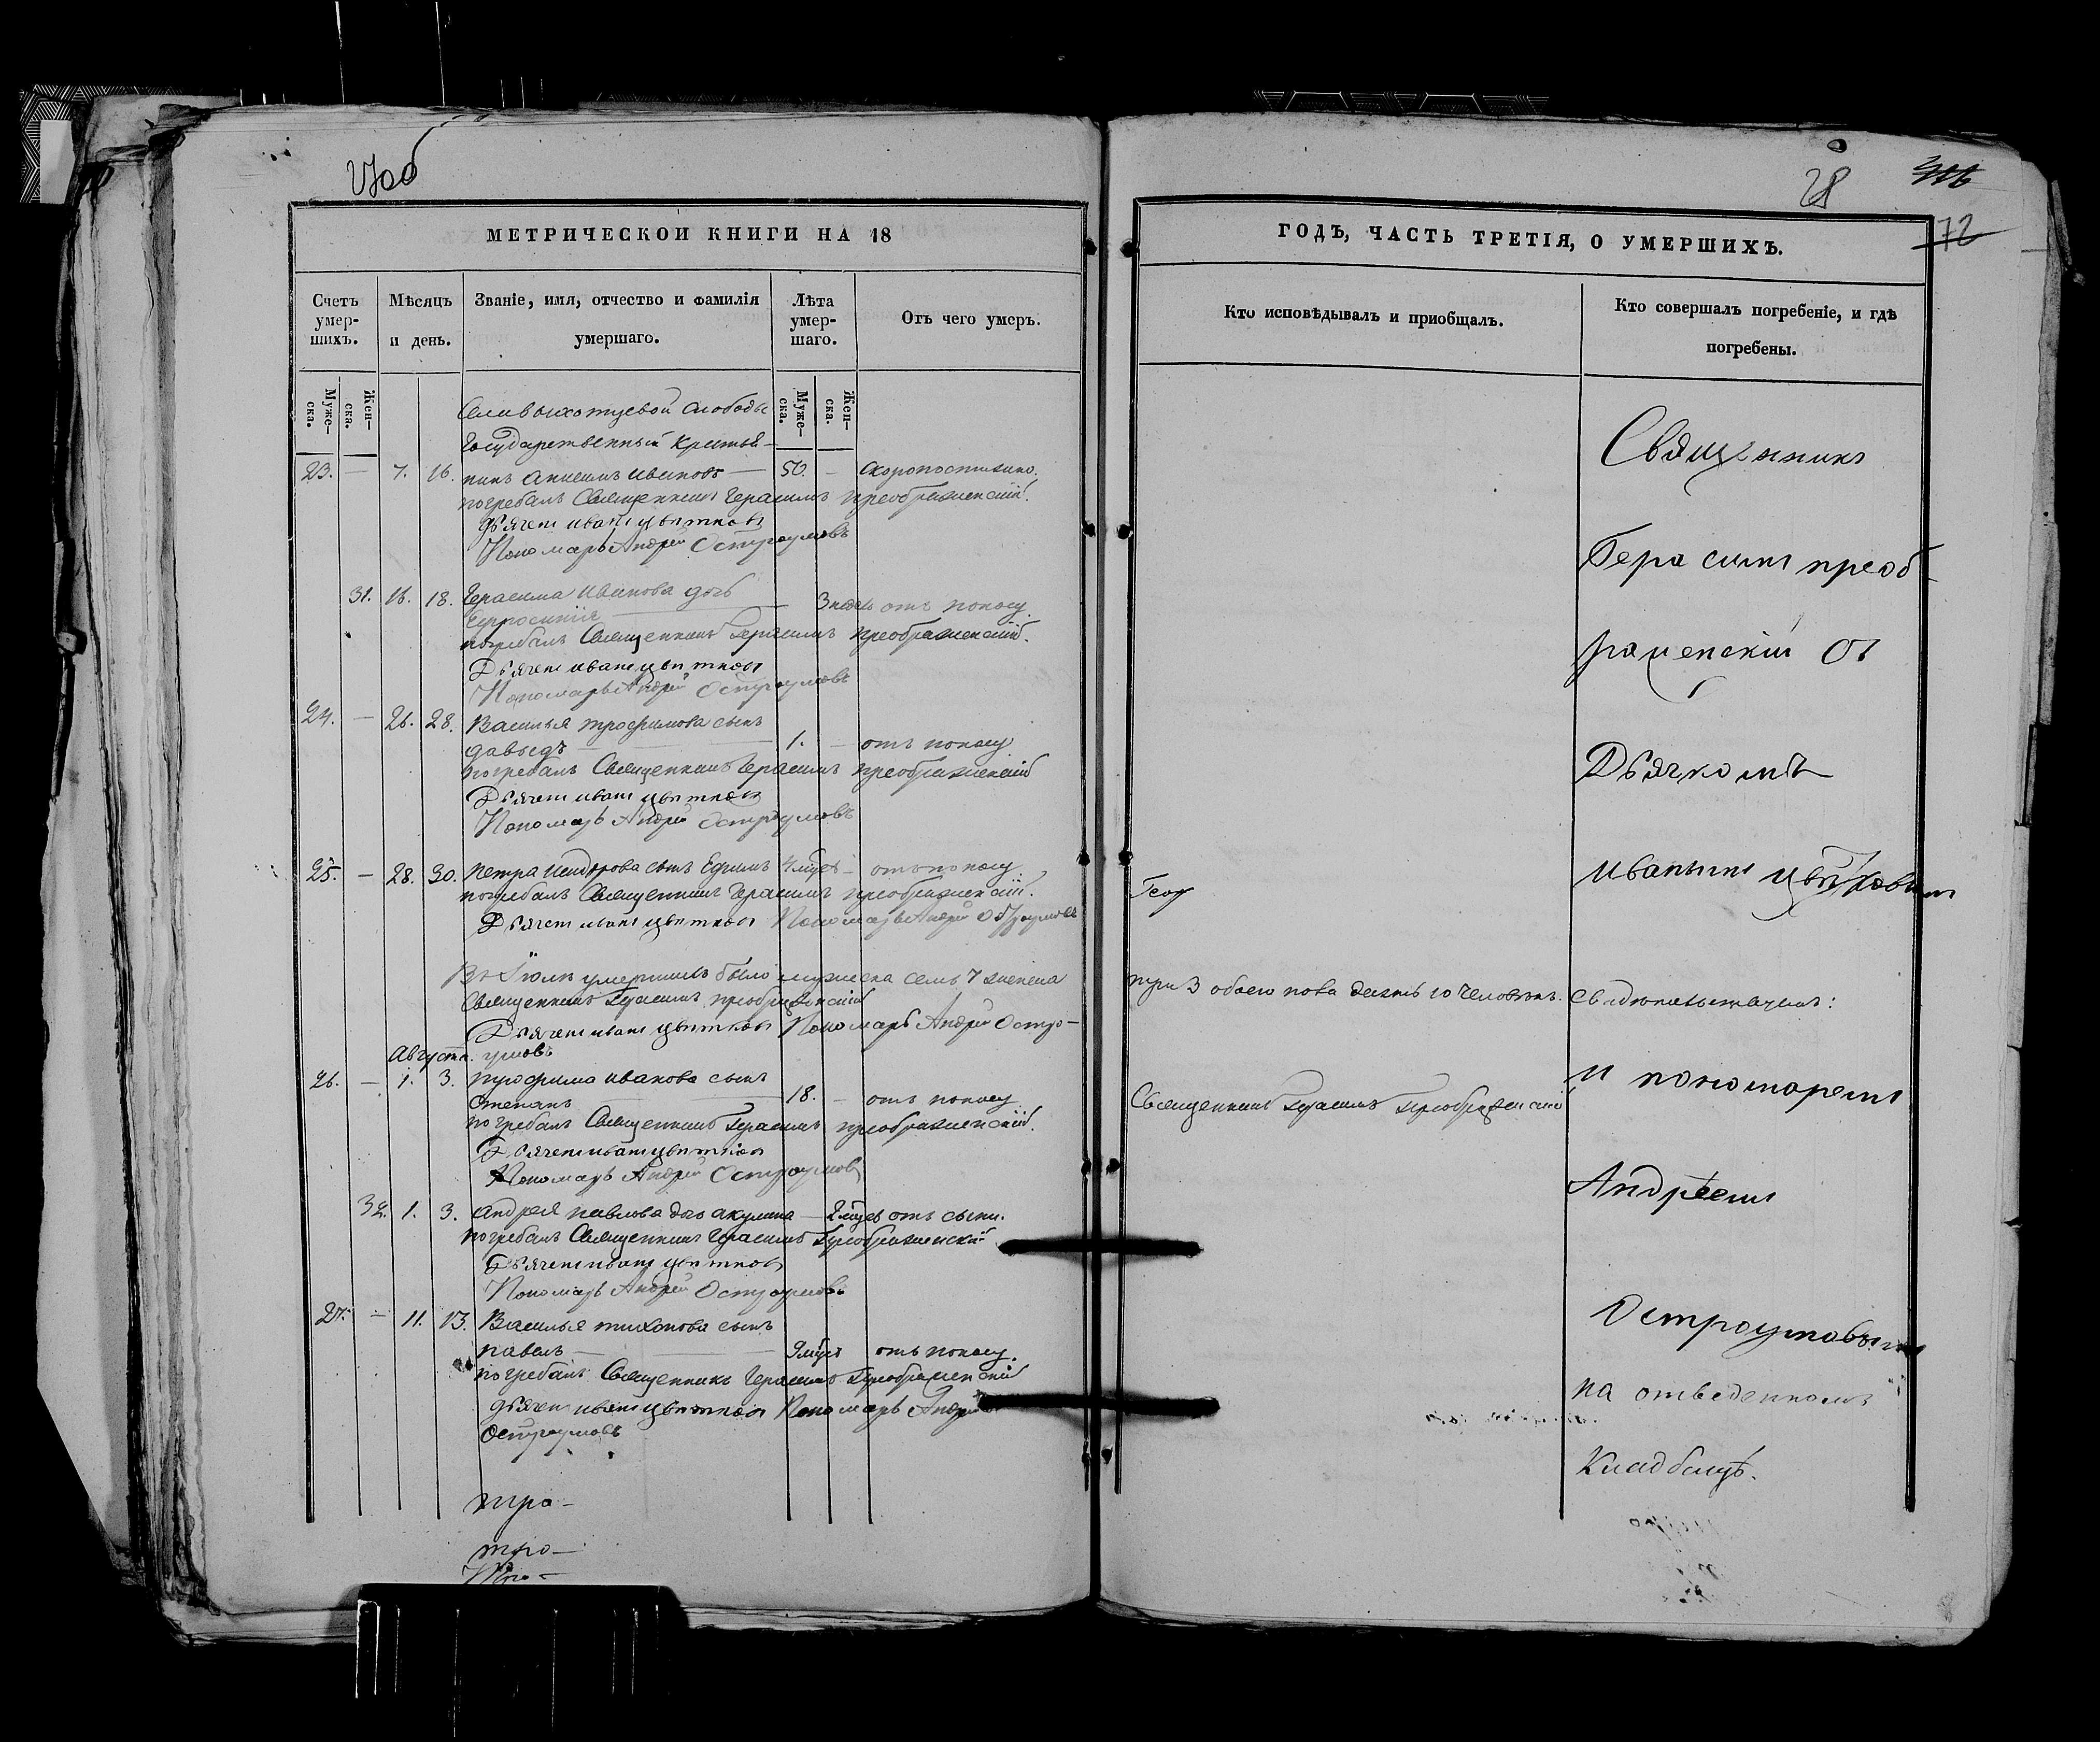 28
72
МЕТРИЧЕСКОЙ КНИГИ НА 18
Счетъ умер-шихъ.
Мѣсяцъ и день.
Званіе, имя, отчество и фамилія умершаго.
Лѣта умер-шаго.
Отъ чего умеръ.
Муже-ска.
Жен-ска.
Муже-ска.
Жен-ска.
слободы
Государственный Крестья-
23. — 7. 16. нинъ Анисимъ Ивановъ — 50. — скоропостижно.
погребалъ Священникъ Герасимъ Преображенскій.
Дьячекъ Иванъ Цвѣтковъ
Пономарь Андрей Остроумовъ
31. 16. 18. Герасима Иванова дочь
3 недѣль отъ поносу
погребалъ Священникъ Герасимъ Преображенскій.
Дьячекъ Иванъ Цвѣтковъ
Пономарь Андрей Остроумовъ
24. — 26. 28. Василья Трофимова сынъ
Давыдъ — 1. — отъ поносу
погребалъ Священникъ Герасимъ Преображенскій
Дьячекъ Иванъ Цвѣтковъ
Пономарь Андрей Остроумовъ
25. — 28. 30. Петра сынъ Ефимъ 4 — отъ поносу
погребалъ Священникъ Герасимъ Преображенскій.
Дьячекъ Иванъ Цвѣтковъ Пономарь Андрей Остроумовъ
Въ Іюлѣ умершихъ было мужеска семь 7 женска
Священникъ Герасимъ Преображенскій
Дьячекъ Иванъ Цвѣтковъ Пономарь Андрей Остро-
умовъ
Августа.
26. — 1. 3. Трофима Иванова сынъ
Степанъ — 18. — отъ поносу
погребалъ Священникъ Герасимъ Преображенскій.
Дьячекъ Иванъ Цвѣтковъ
Пономарь Андрей Остроумовъ
32. 1. 3. Андрея Павлова дочь Акулина — 2 отъ сыпи.
погребалъ Священникъ Герасимъ Преображенскій
Дьячекъ Иванъ Цвѣтковъ
Пономарь Андрей Остроумовъ
27. — 11. 13. Василья Тихонова сынъ
Павелъ — 9 отъ поносу.
погребалъ Священникъ Герасимъ Преображенскій
Дьячекъ Иванъ Цвѣтковъ Пономарь Андрей
Остроумовъ
тро-
тро-
ГОДЪ, ЧАСТЬ ТРЕТІЯ, О УМЕРШИХЪ.
Кто исповѣдывалъ и пріобщалъ.
Кто совершалъ погребеніе, и гдѣ погребены.
три 3 обоего пола десять 10 человѣкъ.
Священникъ Герасимъ Преображенскій
Священникъ
Герасимъ Преоб-
раженскій съ
Дьячкомъ
Иваномъ Цвѣтковымъ
свидѣтельствуемъ:
и пономаремъ
Андреемъ
Остроумовымъ
на отведенномъ
Кладбищѣ.